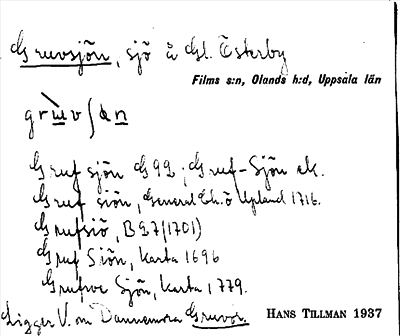 Gruvsjön, sjö å Gl. Österby
Films s:n, Olands h:d, Uppsala län
Gruf sjön G92; Gruf-Sjön ek.
Gruf siön, General Ch. ö Upland 1716.
Grufsiö, B27 (1701)
Gruf Siön, Karta 1696
Grufwe Sjön, Karta 1779.
Ligger V. om Dannemora Gruvor.
HANS TILLMAN 1937